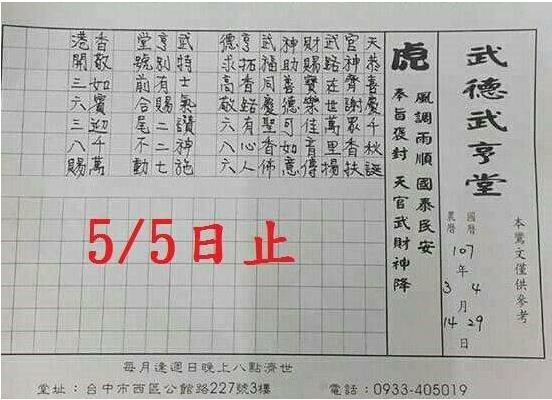 武德武亨堂
本鸞文僅供參考
國曆 農曆
107年
4 3月
29 14日
虎
風調雨順 國泰民安
奉旨褒封 天官武財神降
天恭喜慶千秋誕
官神齊謝眾香扶
武路在世萬里揚
財賜寶樂佳音傳
神助善德可如意
武福同慶聖香佛
亨拓香路有心人
德求高敬六八六
武特士氣讚神施
亨別有賜二二七
堂號前合尾不動
香敬如賓迎千萬
港開三六三八賜
5/5日止
每月逢週日晚上八點濟世
堂址：台中市西區公館路227號3樓 電話：0933-405019